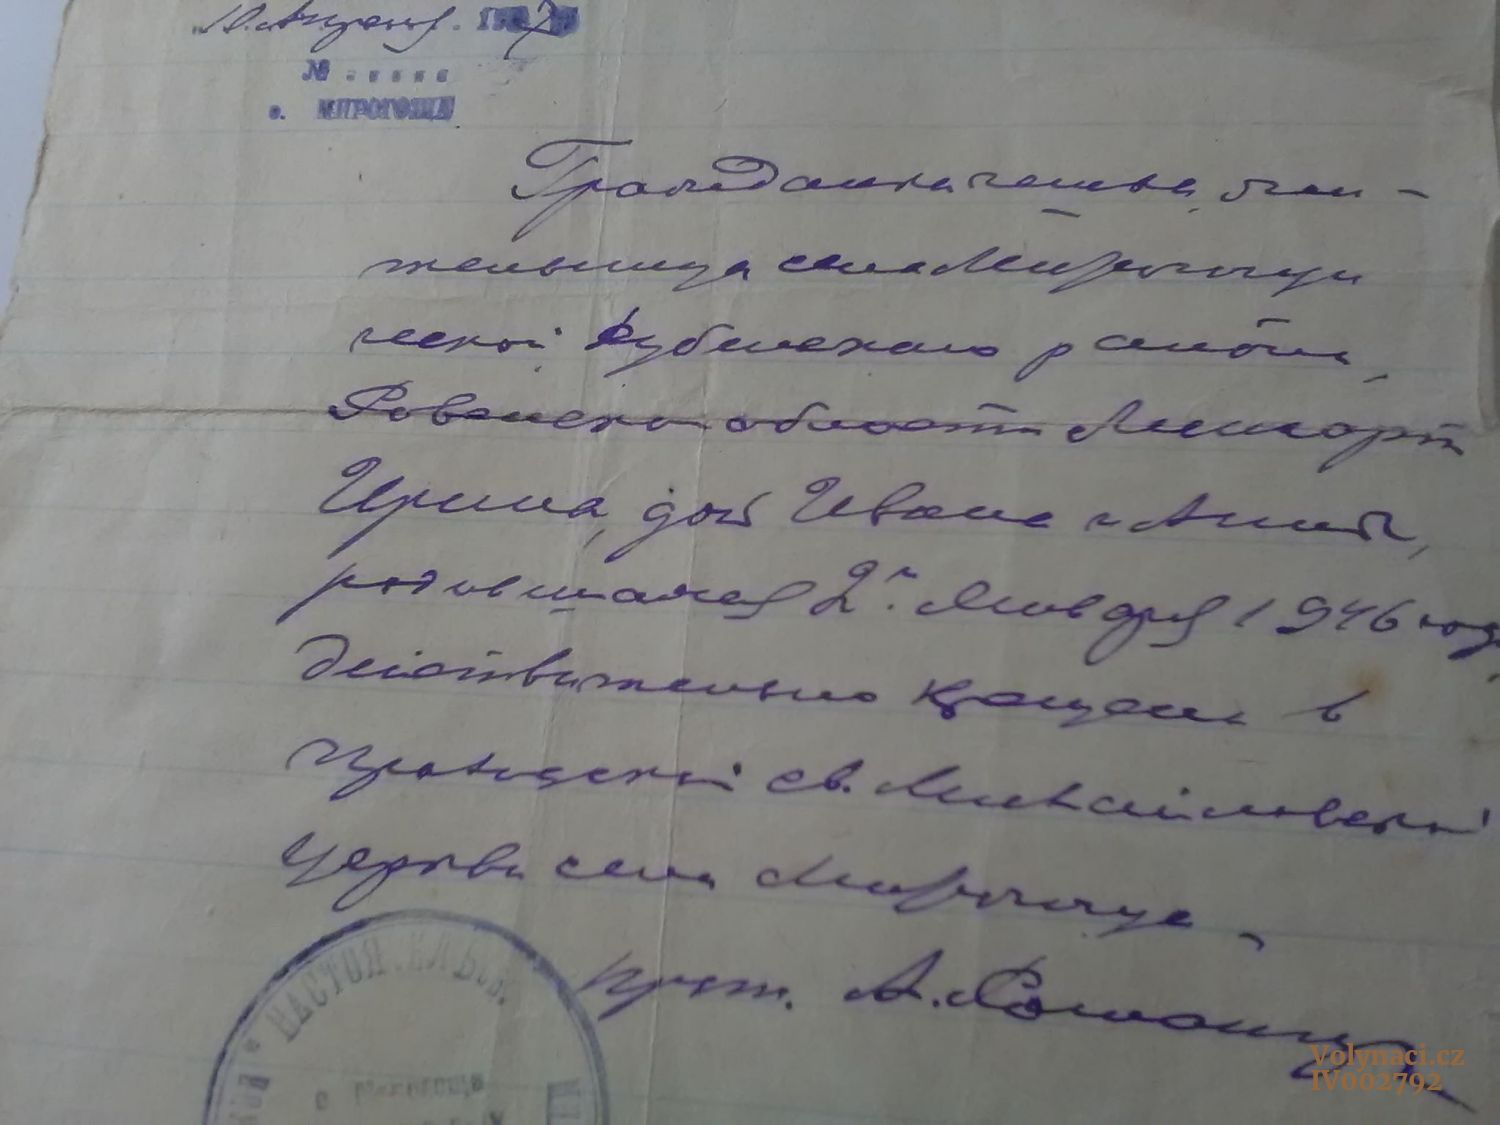 "10. Апреля. 1947
№ .....
с. МИРОГОЩИ
Гражданка чешка, жи-
тельница села Мирогощи
ческой Дубенского района,
Ровенской области
Ирина, дочь Ивана и Анны,
родившаяся 2го Января 1946 года,
действительно крещена в
приходской св. Михайловской
церкви села Мирогоще.
прот. А.
НАСТОЯТЕЛЬ
с
Volynaci.cz
IV002792